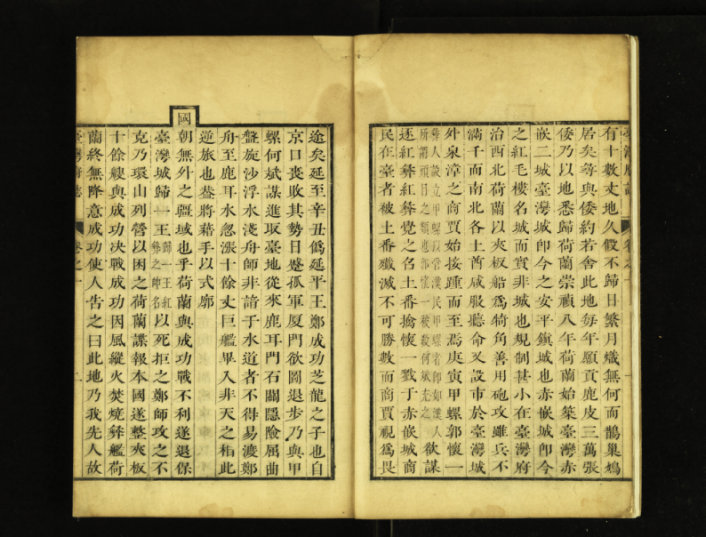 臺灣府志 卷之一
有十數丈地久假不歸日繁月熾無何而鵲巢鳩
居矣尋與倭約若舍此地每年願貢鹿皮三萬張
倭乃以地悉歸荷蘭崇禎八年荷蘭始築臺灣赤
嵌二城臺灣城卽今之安平鎮城也赤嵌城卽今
之紅毛樓名城而實非城也規制甚小在臺灣府
治西北荷蘭以夾板船為犄角善用砲攻雖兵不
滿千而南北各土酋咸服聽命又設市於臺灣城
外泉漳之商賈始接踵而至焉庚寅甲螺郭懷一
欲謀
逐紅彝紅彝覺之名土番擒懷一戮于赤嵌城商
民在臺者被土番殲滅不可勝數而商賈視為畏
途矣延至辛丑偽延平王鄭成功芝龍之子也自
京口喪敗其勢日蹙孤軍厦門欲圖退步乃與甲
螺何斌謀進取臺地從來鹿耳門石關隱險屈曲
盤旋沙浮水淺舟師非諳于水道者不得易渡鄭
舟至鹿耳水忽漲十餘丈巨艦畢入非天之相此
逆旅也蓋將藉手以式廓
國
朝無外之疆域也乎荷蘭與成功戰不利遂退保
臺灣城歸一王以死拒之鄭師攻之不
克乃環山列營以困之荷蘭謀報本國遂整夾板
十餘艘與成功决戰成功因風縱火焚燒彝艦荷
蘭終無降意成功使人告之曰此地乃我先人故
臺灣府志 卷之一 二